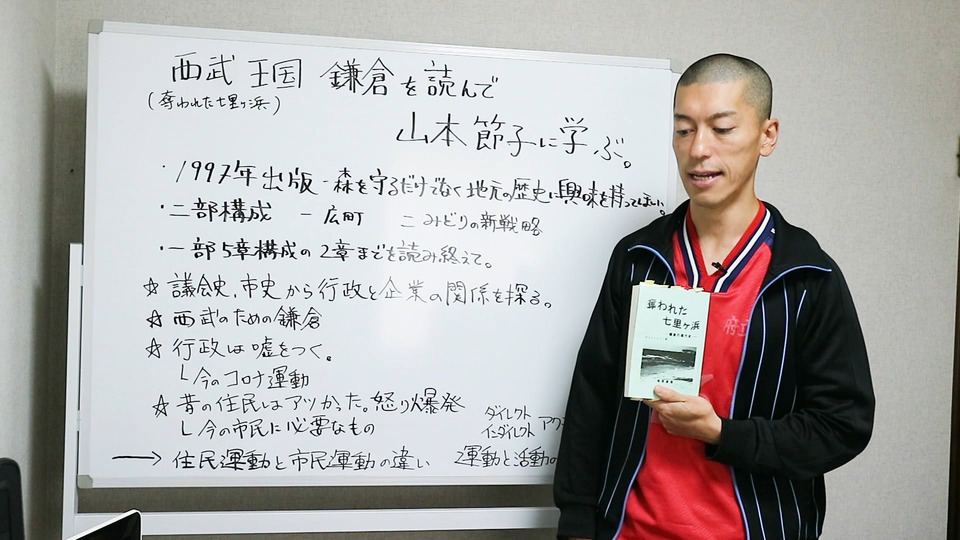 西武王国 鎌倉を読んで
(奪われた七里ヶ浜)
山本節子に学ぶ。
・1997年出版 - 森を守るだけでなく地元の歴史に興味を持ってほしい。
・二部構成 一 広町 二 みどりの新戦略
・一部5章構成の2章までを読み終えて。
☆ 議会史、市史から行政と企業の関係を探る。
☆ 西武のための鎌倉
☆ 行政は嘘をつく。
└ 今のコロナ運動
☆ 昔の住民はアツかった。怒り爆発
└ 今の市民に必要なもの
ダイレクト
インダイレクト アク
→ 住民運動と市民運動の違い 運動と活動の
奪われた
七里ヶ浜